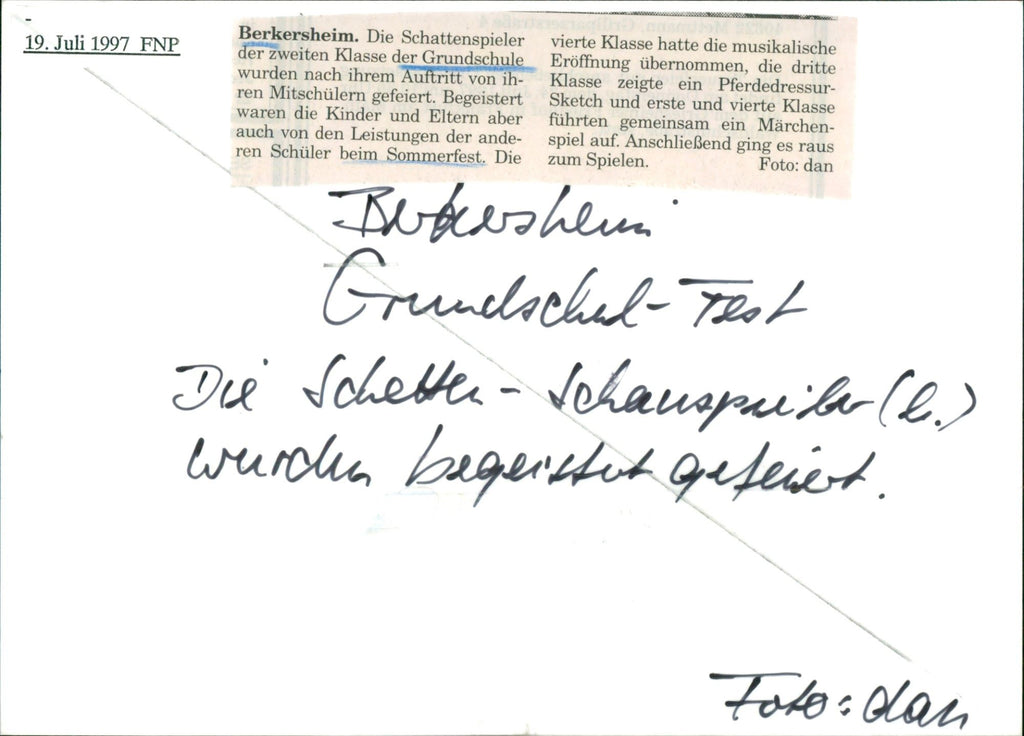 19. Juli 1997 FNP
Berkersheim. Die Schattenspieler
der zweiten Klasse der Grundschule
wurden nach ihrem Auftritt von ih-
ren Mitschülern gefeiert. Begeistert
waren die Kinder und Eltern aber
auch von den Leistungen der ande-
ren Schüler beim Sommerfest. Die
vierte Klasse hatte die musikalische
Eröffnung übernommen, die dritte
Klasse zeigte ein Pferdedressur-
Sketch und erste und vierte Klasse
führten gemeinsam ein Märchen-
spiel auf. Anschließend ging es raus
zum Spielen. Foto: dan
Berkersheim
Grundschul-Fest
Die Schatten-Schauspieler
wurden begeistert gefeiert.
Foto: dan